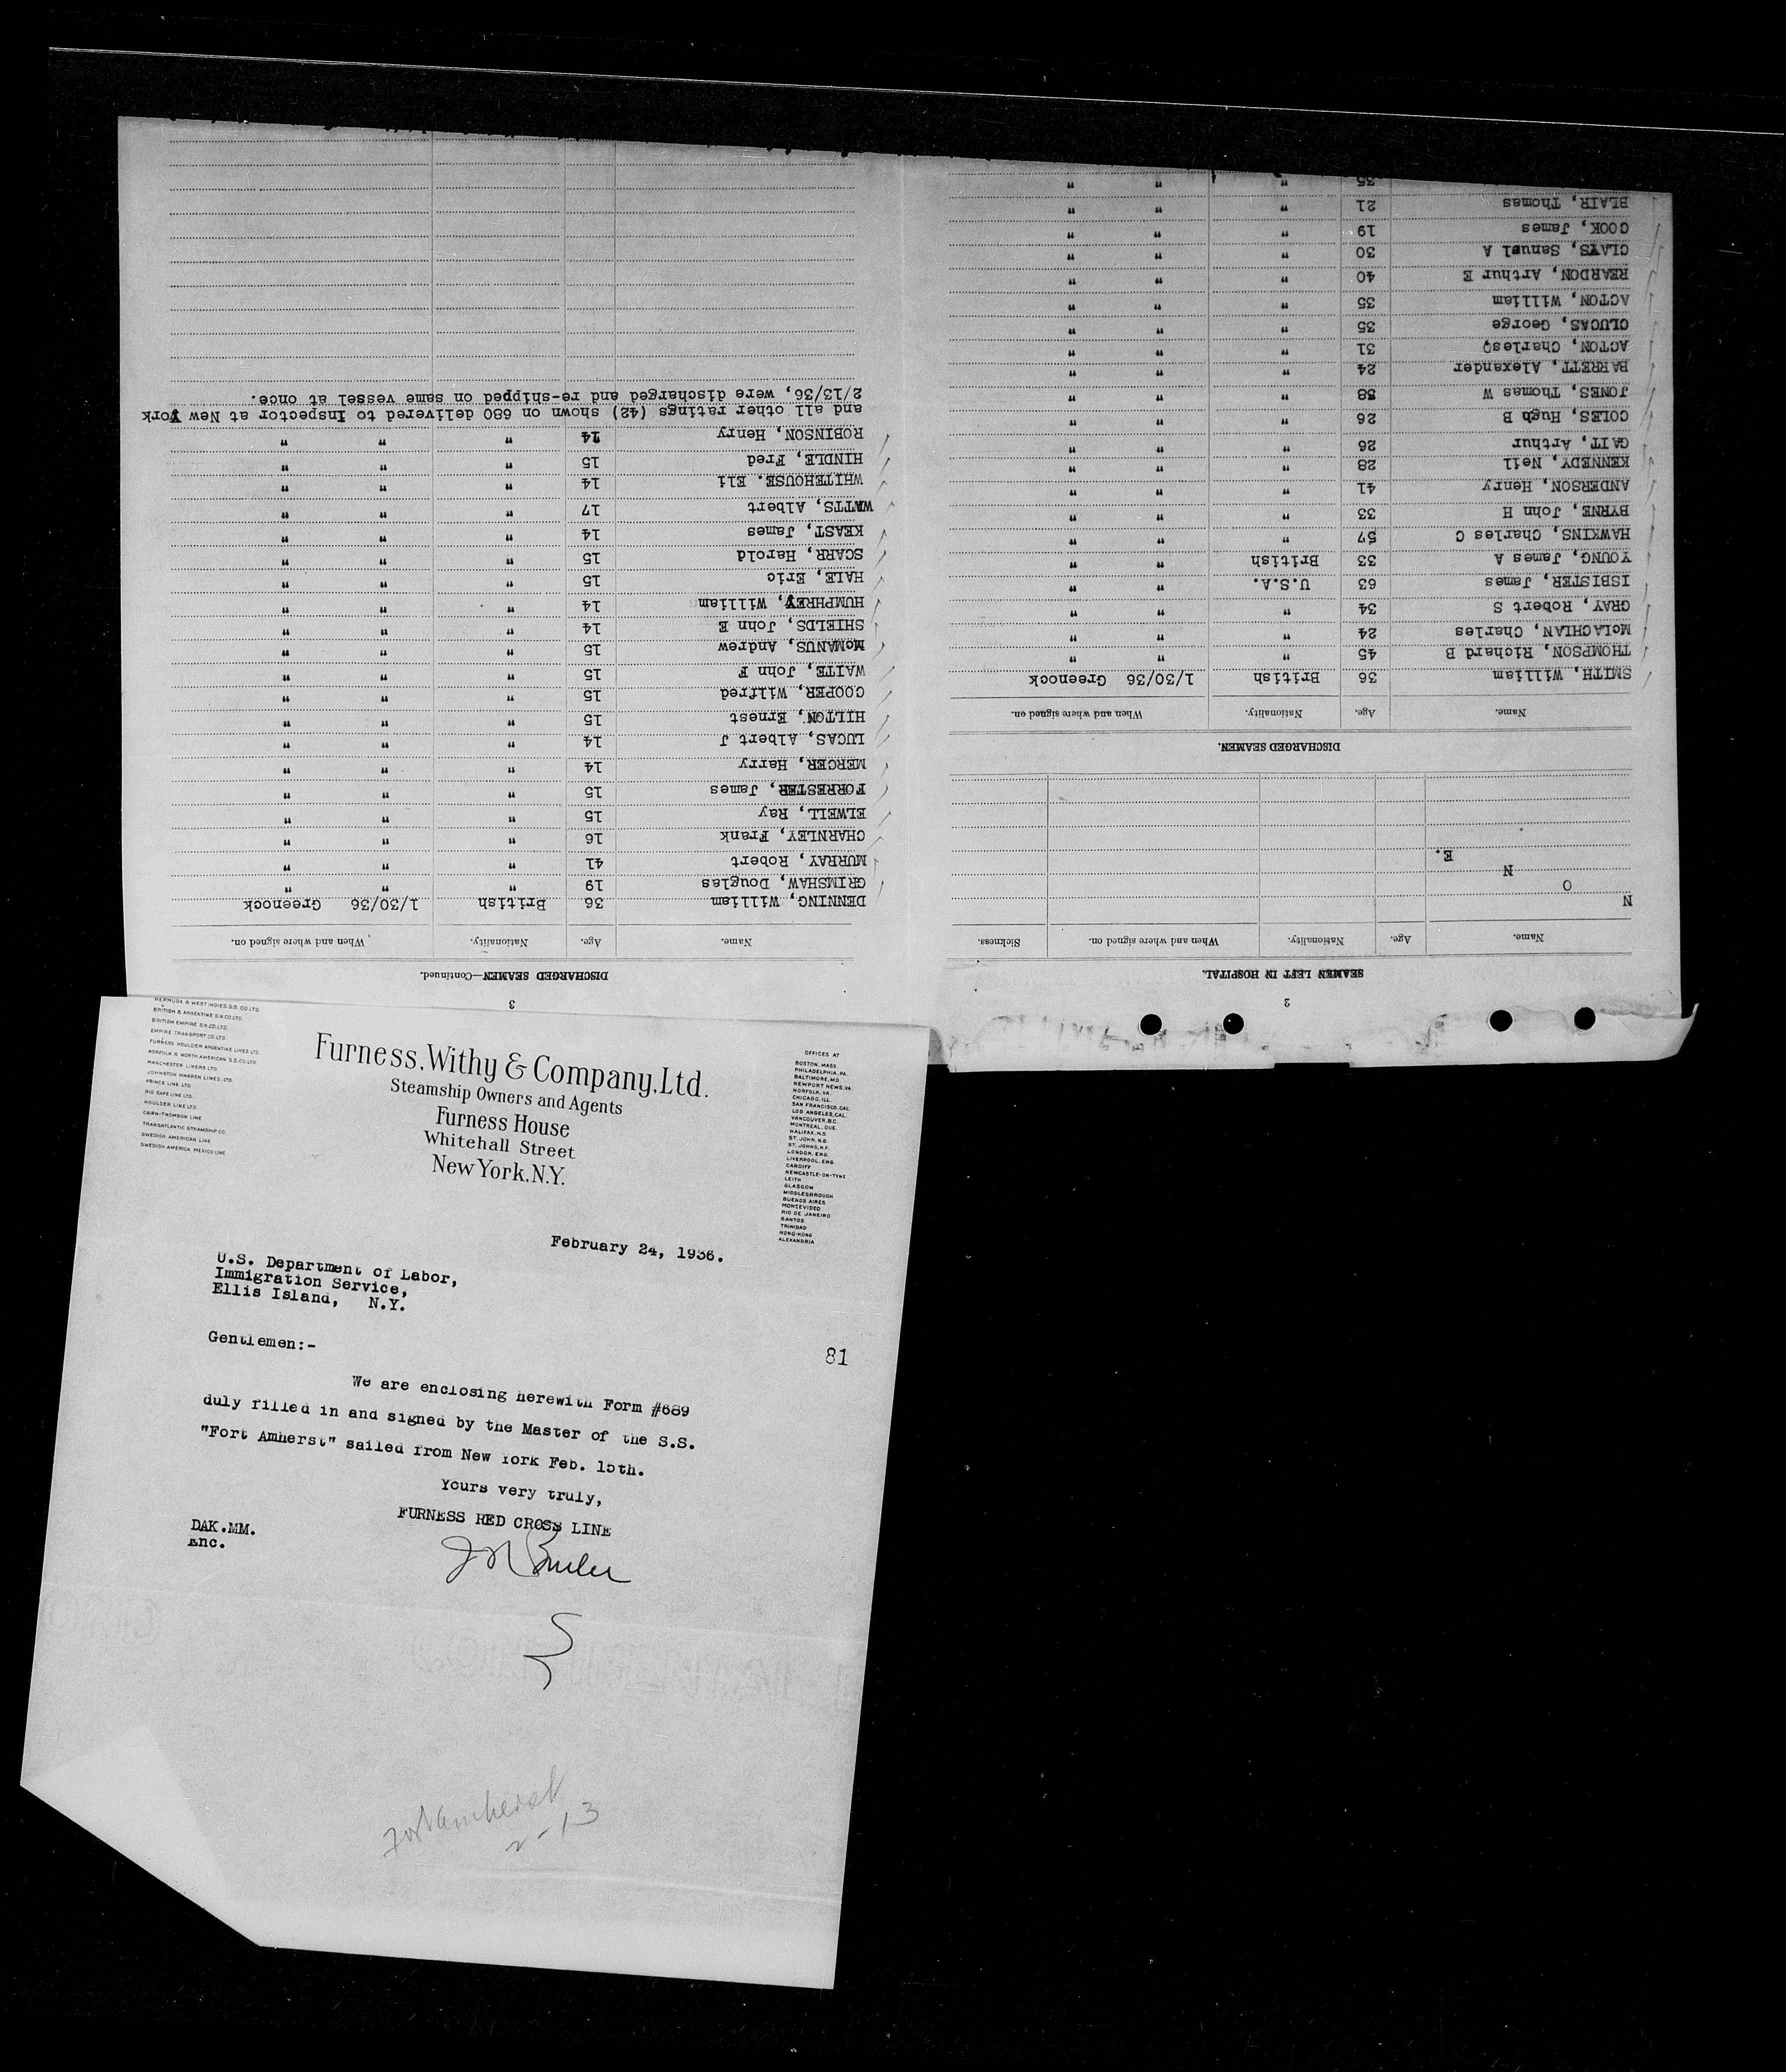 2
SEAMEN LEFT IN HOSPITAL.
Name. Age. Nationality. When and where signed on. Sickness.
N
O
N
E.
DISCHARGED SEAMEN.
Name. Age. Nationality. When and where signed on.
SMITH, William 36 British 1/30/36 Greenock
THOMPSON, Richard B 45 " " "
McLACHLAN, Charles 24 " " "
GRAY, Robert S 34 " " "
ISBISTER, James 63 U.S.A. " "
YOUNG, James A 33 British " "
HAWKINS, Charles C 57 " " "
BYRNE, John H 33 " " "
ANDERSON, Henry 41 " " "
KENNEDY, Neil 28 " " "
GAIT, Arthur 26 " " "
COLES, Hugh B 26 " " "
JONES, Thomas W 58 " " "
BARRETT, Alexander 24 " " "
ACTON, Charles 31 " " "
CLUCAS, George 35 " " "
ACTON, William 35 " " "
REARDON, Arthur E 40 " " "
CLAYS, Samuel A 30 " " "
COOK, James 19 " " "
BLAIR, Thomas 21 " " "
35 " " "
3
DISCHARGED SEAMEN—Continued.
Name. Age. Nationality. When and where signed on.
DENNING, William 36 British 1/30/36 Greenock
GRIMSHAW, Douglas 19 " " "
MURRAY, Robert 41 " " "
CHARNLEY, Frank 16 " " "
ELWELL, Ray 15 " " "
FORRESTER, James 15 " " "
MERCER, Harry 14 " " "
LUCAS, Albert J 14 " " "
HILTON, Ernest 15 " " "
COOPER, Wilfred 15 " " "
WAITE, John F 15 " " "
McMANUS, Andrew 15 " " "
SHIELDS, John E 14 " " "
HUMPHREY, William 14 " " "
HALE, Eric 15 " " "
SCARR, Harold 15 " " "
KEAST, James 14 " " "
WATTS, Albert 17 " " "
WHITEHOUSE. Eli 14 " " "
HINDLE, Fred 15 " " "
ROBINSON, Henry 14 " " "
and all other ratings (42) shown on 680 delivered to Inspector at New York
2/13/36, were discharged and re-shipped on same vessel at once.
BERMUDA & WEST INDIES S.S. CO. LTD.
BRITISH & ARGENTINE S.N. CO. LTD.
BRITISH EMPIRE S.N. CO. LTD.
EMPIRE TRANSPORT CO. LTD.
FURNESS HOULDER ARGENTINE LINES LTD.
NORFOLK & NORTH AMERICAN S.S. CO. LTD.
MANCHESTER LINERS LTD.
JOHNSTON WARREN LINES, LTD.
PRINCE LINE LTD.
RIO CAPE LINE LTD.
HOULDER LINE LTD.
CAIRN-THOMSON LINE
TRANSATLANTIC STEAMSHIP CO.
SWEDISH AMERICAN LINE
SWEDISH AMERICA MEXICO LINE
Furness, Withy & Company, Ltd.
Steamship Owners and Agents
Furness House
Whitehall Street
New York, N.Y.
OFFICES AT
BOSTON, MASS.
PHILADELPHIA, PA.
BALTIMORE, MD.
NEWPORT NEWS, VA.
NORFOLK, VA.
CHICAGO, ILL.
SAN FRANCISCO, CAL.
LOS ANGELES, CAL.
VANCOUVER, B.C.
MONTREAL, QUE.
HALIFAX, N.S.
ST. JOHN, N.B.
ST. JOHNS, N.F.
LONDON, ENG.
LIVERPOOL, ENG.
CARDIFF
NEWCASTLE-ON-TYNE
LEITH
GLASGOW
MIDDLESBROUGH
BUENOS AIRES
MONTEVIDEO
RIO DE JANEIRO
SANTOS
TRINIDAD
HONG-KONG
ALEXANDRIA
February 24, 1936.
U.S. Department of Labor,
Immigration Service,
Ellis Island, N.Y.
Gentlemen:-
81
We are enclosing herewith Form #689
duly filled in and signed by the Master of the S.S.
"Fort Amherst" sailed from New York Feb. 15th.
Yours very truly,
FURNESS RED CROSS LINE
DAK.MM.
Enc.
Fort Amherst
2-13